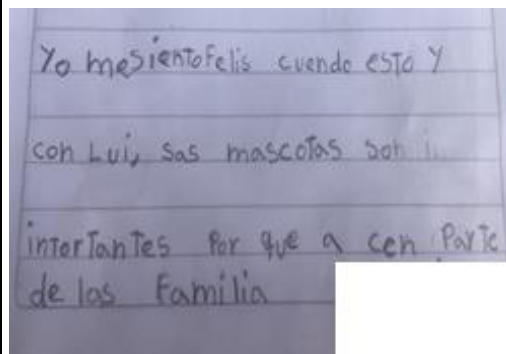 Yo mesientofelis cuendo esto y
con Lui, sas mascotas son i
intortantes Por que a cen Parte
de las Familia